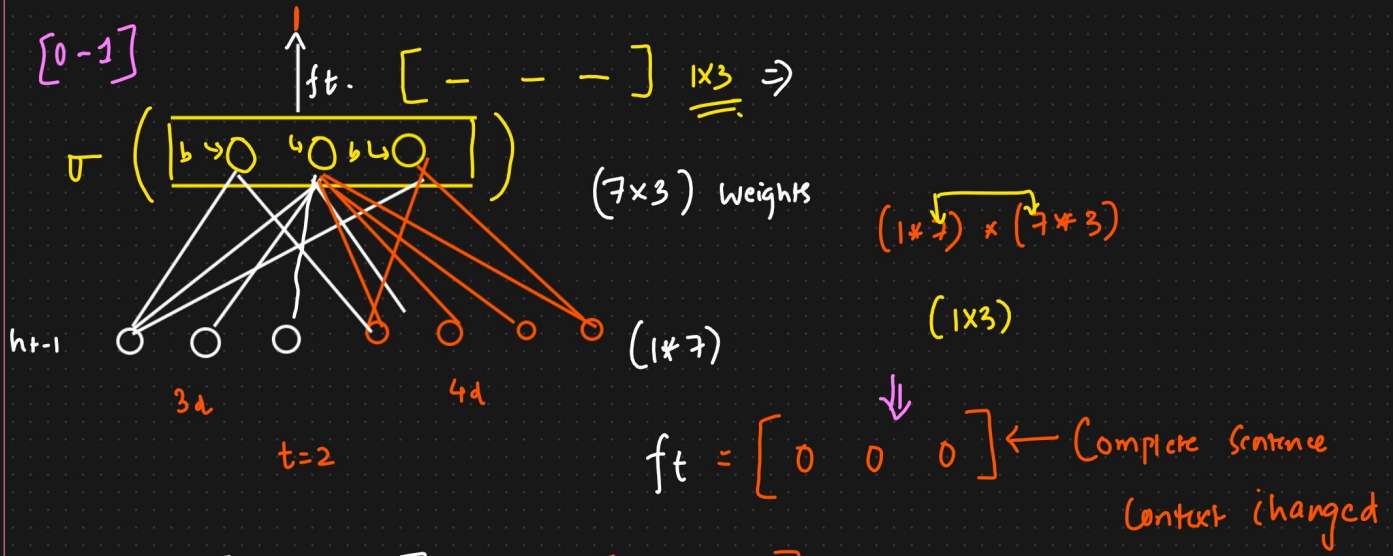 [0-1]
ft. [ - - - ] 1x3 ⇒
σ ( b b b )
(7x3) weights
(1*7) * (7*3)
(1x3)
ht-1
(1*7)
3d 4d
t=2
ft = [ 0 0 0 ] ← Complete Sentence
Context changed